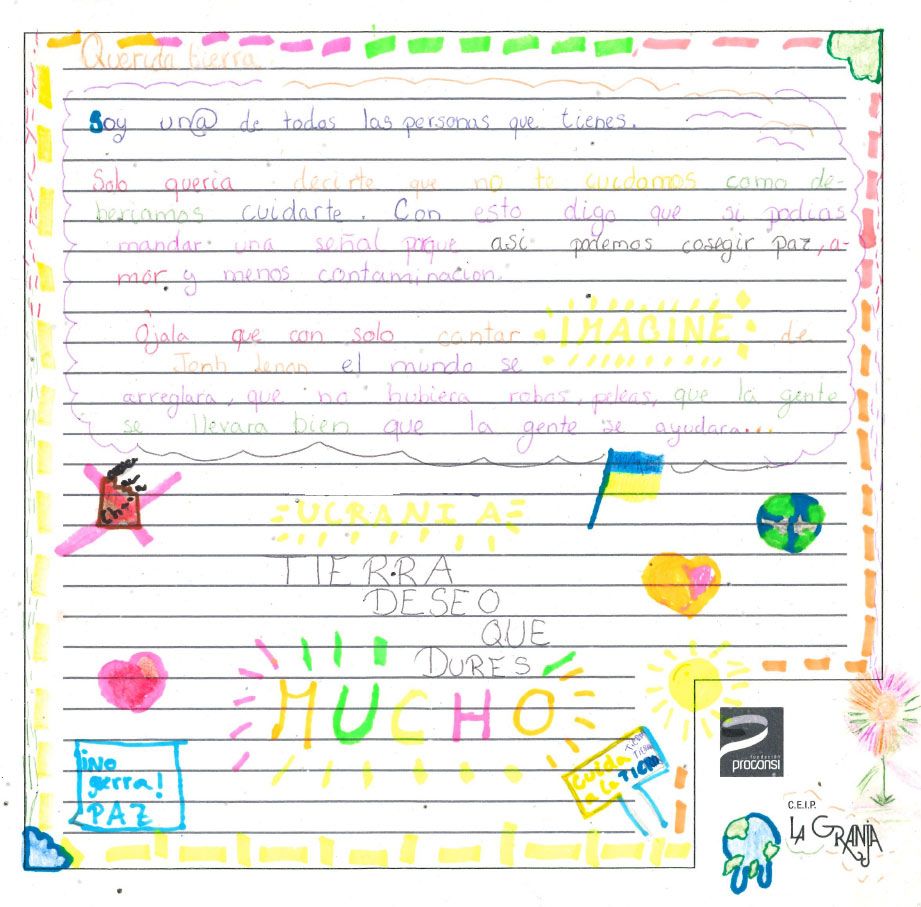 Querida tierra
Soy un@ de todas las personas que tienes.
Solo queria decirte que no te cuidamos como de-
beriamos cuidarte. Con esto digo que si podias
mandar una señal porque asi podemos cosegir paz, a-
mor y menos contaminacion.
Ojala que con solo cantar IMAGINE de
Jonh Lenon el mundo se
arreglara, que no hubiera robos, peleas, que la gente
se llevara bien que la gente se ayudara...
UCRANIA
TIERRA
DESEO
QUE
DURES
MUCHO
¡NO
gerra!
PAZ
Cuida
a la TIERRA
fundación
proconsi
C.E.I.P.
LA GRANJA